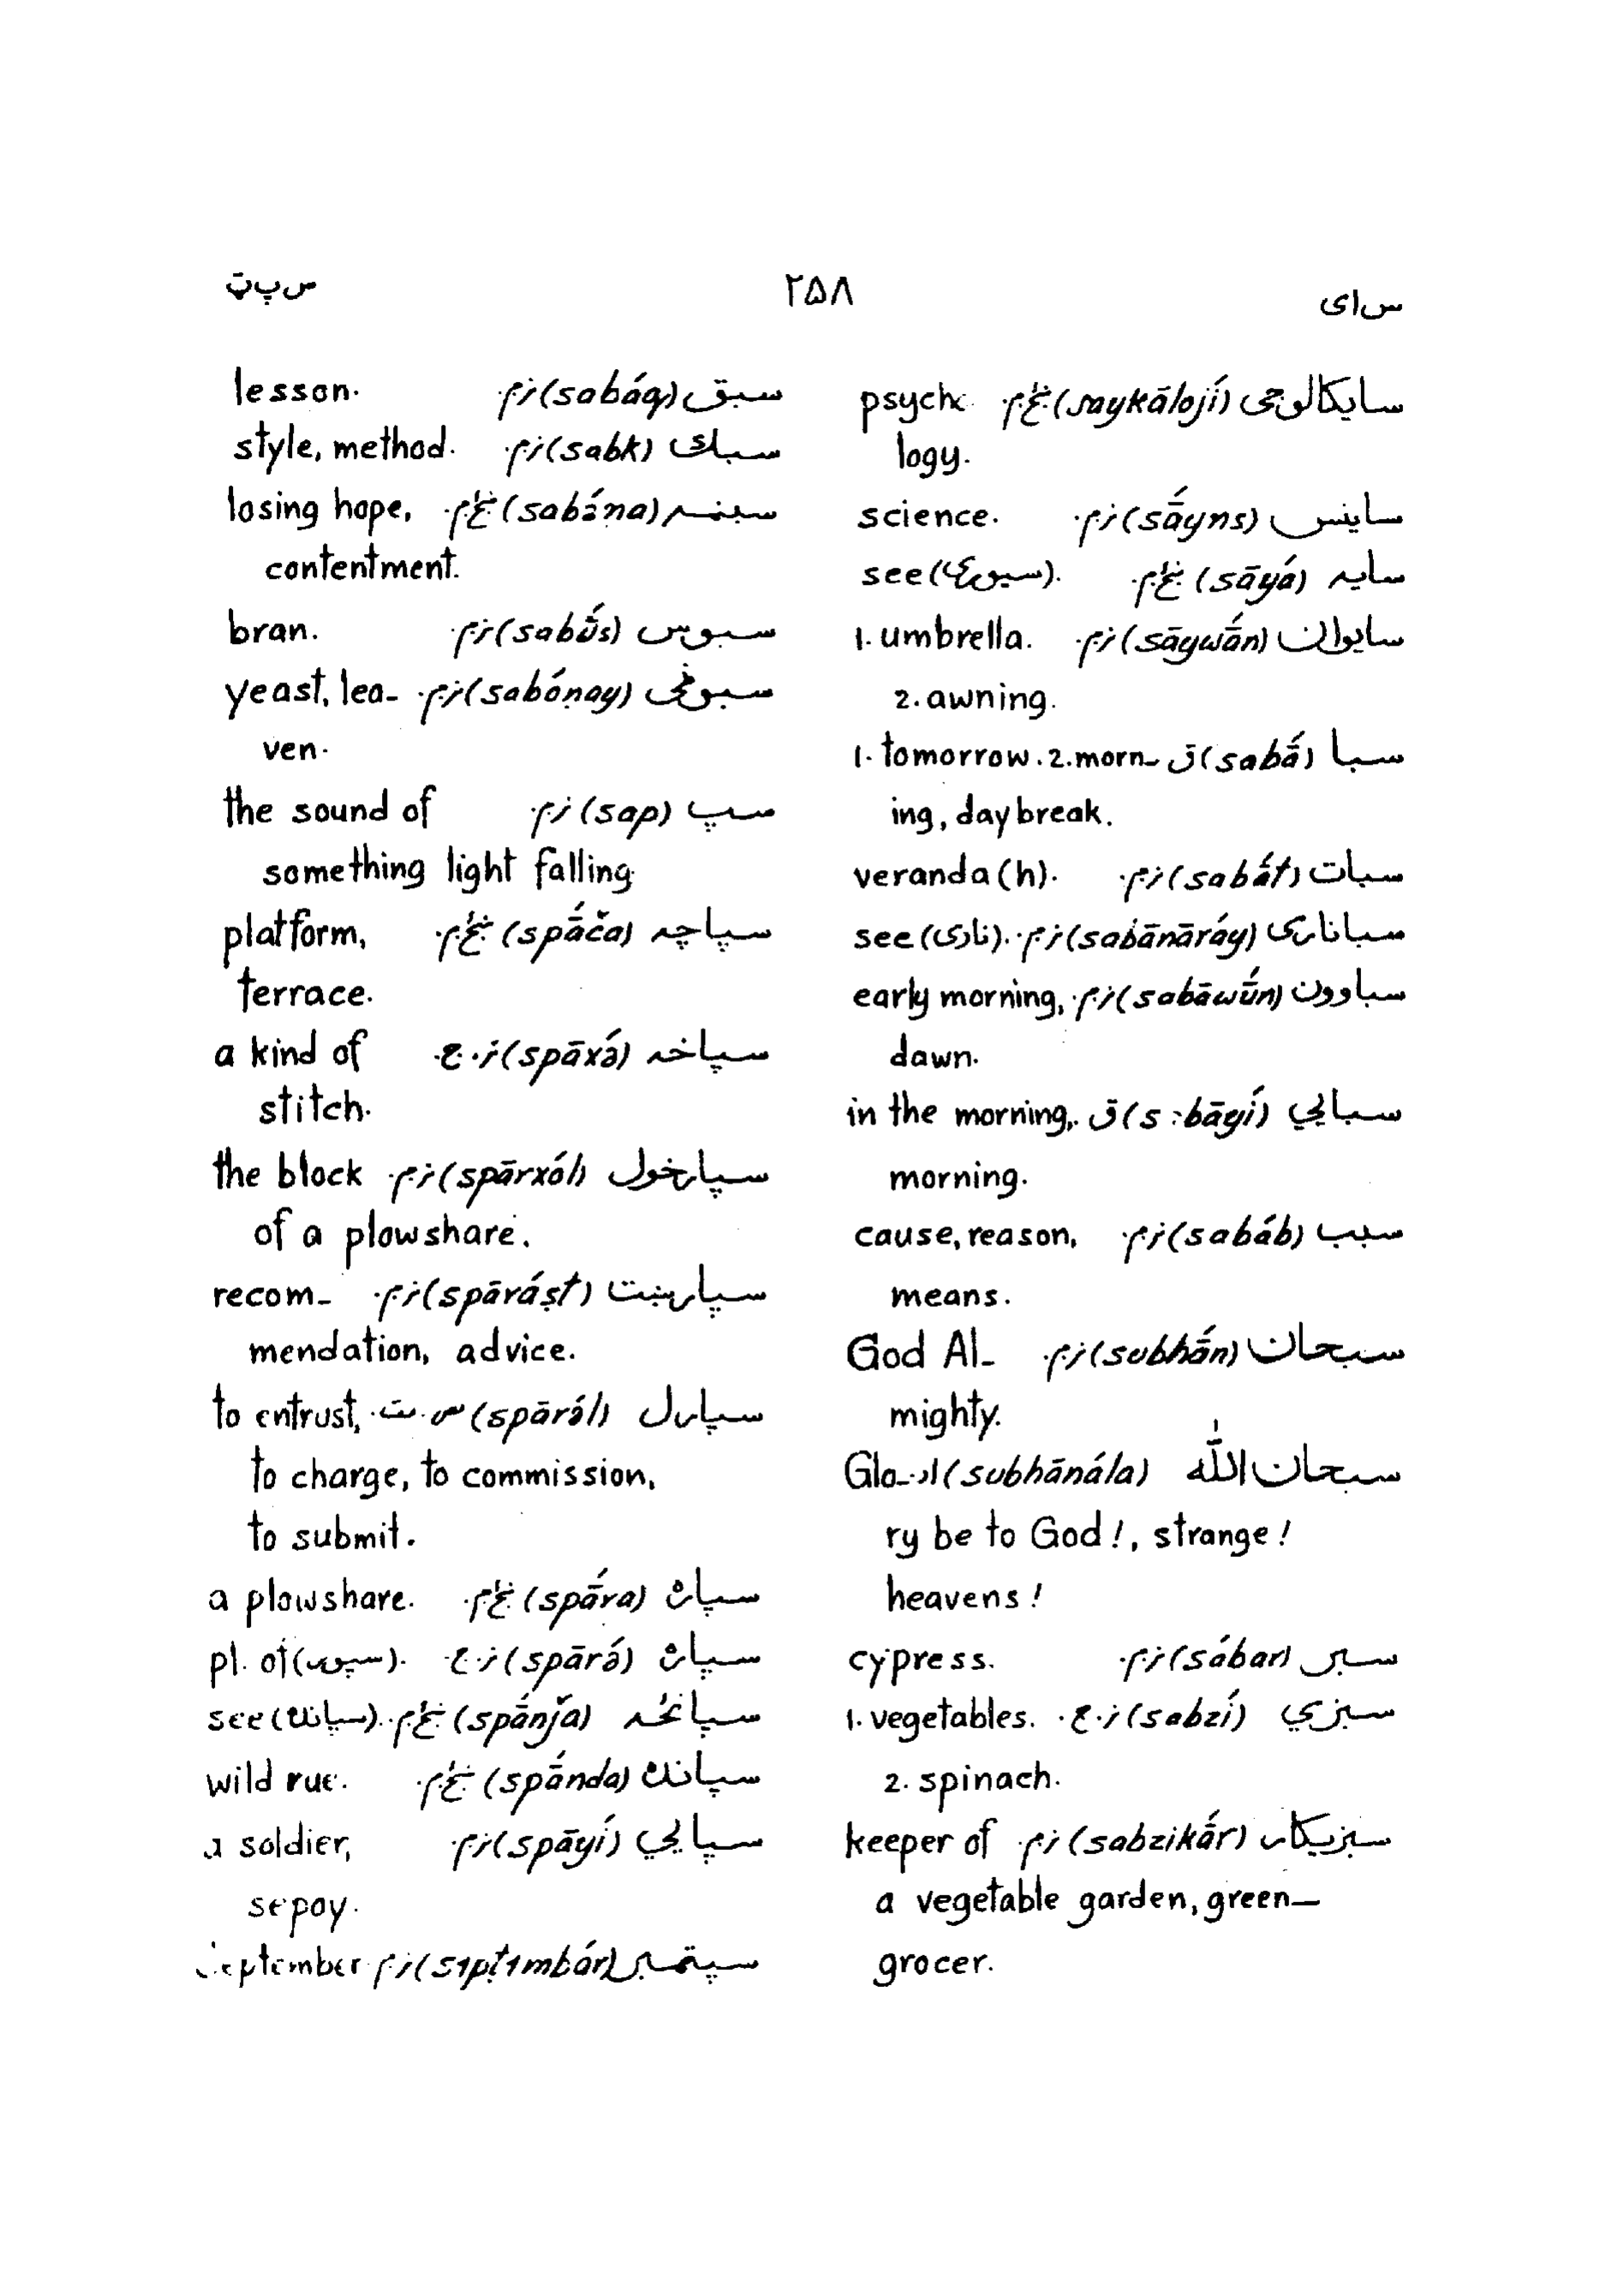 س ای
۲۵۸
س پ ټ
سایکالوجی (saykālojí) غ.م.
logy.
ساینس (sā́yns) ز.م. science.
سایه (sāyá) غ.م. see (سیوری).
سایوان (sāywā́n) ز.م. 1. umbrella.
2. awning.
سبا (sabā́) ق 1. tomorrow. 2. morn-
ing, daybreak.
سبات (sabā́t) ز.م. veranda(h).
سباناری (sabānāráy) ز.م. see (ناری).
سباوون (sabāwū́n) ز.م. early morning,
dawn.
سبايي ق in the morning,
morning.
سبب (sabáb) ز.م. cause, reason,
means.
سبحان (subhā́n) ز.م. God Al-
mighty.
سبحان الله (subhānála) اد. Glo-
ry be to God!, strange!
heavens!
سبر (sábar) ز.م. cypress.
سبزي (sabzí) ز.ج. 1. vegetables.
2. spinach.
سبزیکار (sabzikā́r) ز.م. keeper of
a vegetable garden, green-
grocer.
سبق (sabáq) ز.م. lesson.
سبك (sabk) ز.م. style, method.
سبنه (sabə́na) غ.م. losing hope,
contentment.
سبوس (sabū́s) ز.م. bran.
سبوڼی (sabóṇay) ز.م. yeast, lea-
ven.
سپ (sap) ز.م. the sound of
something light falling.
سپاچه (spā́ča) غ.م. platform,
terrace.
سپاخه (spāxə́) ز.ج. a kind of
stitch.
سپارخول (spārxól) ز.م. the block
of a plowshare.
سپارښت (spārə́ṣt) ز.م. recom-
mendation, advice.
سپارل (spārə́l) س.مت. to entrust,
to charge, to commission,
to submit.
سپاره (spā́ra) غ.م. a plowshare.
سپاره (spārə́) ز.ج. pl. of (سپور).
سپانځه (spā́nǰa) غ.م. see (سپانده).
سپانده (spā́nda) غ.م. wild rue.
سپايي (spāyí) ز.م. a soldier,
sepoy.
سپتمبر ز.م. September